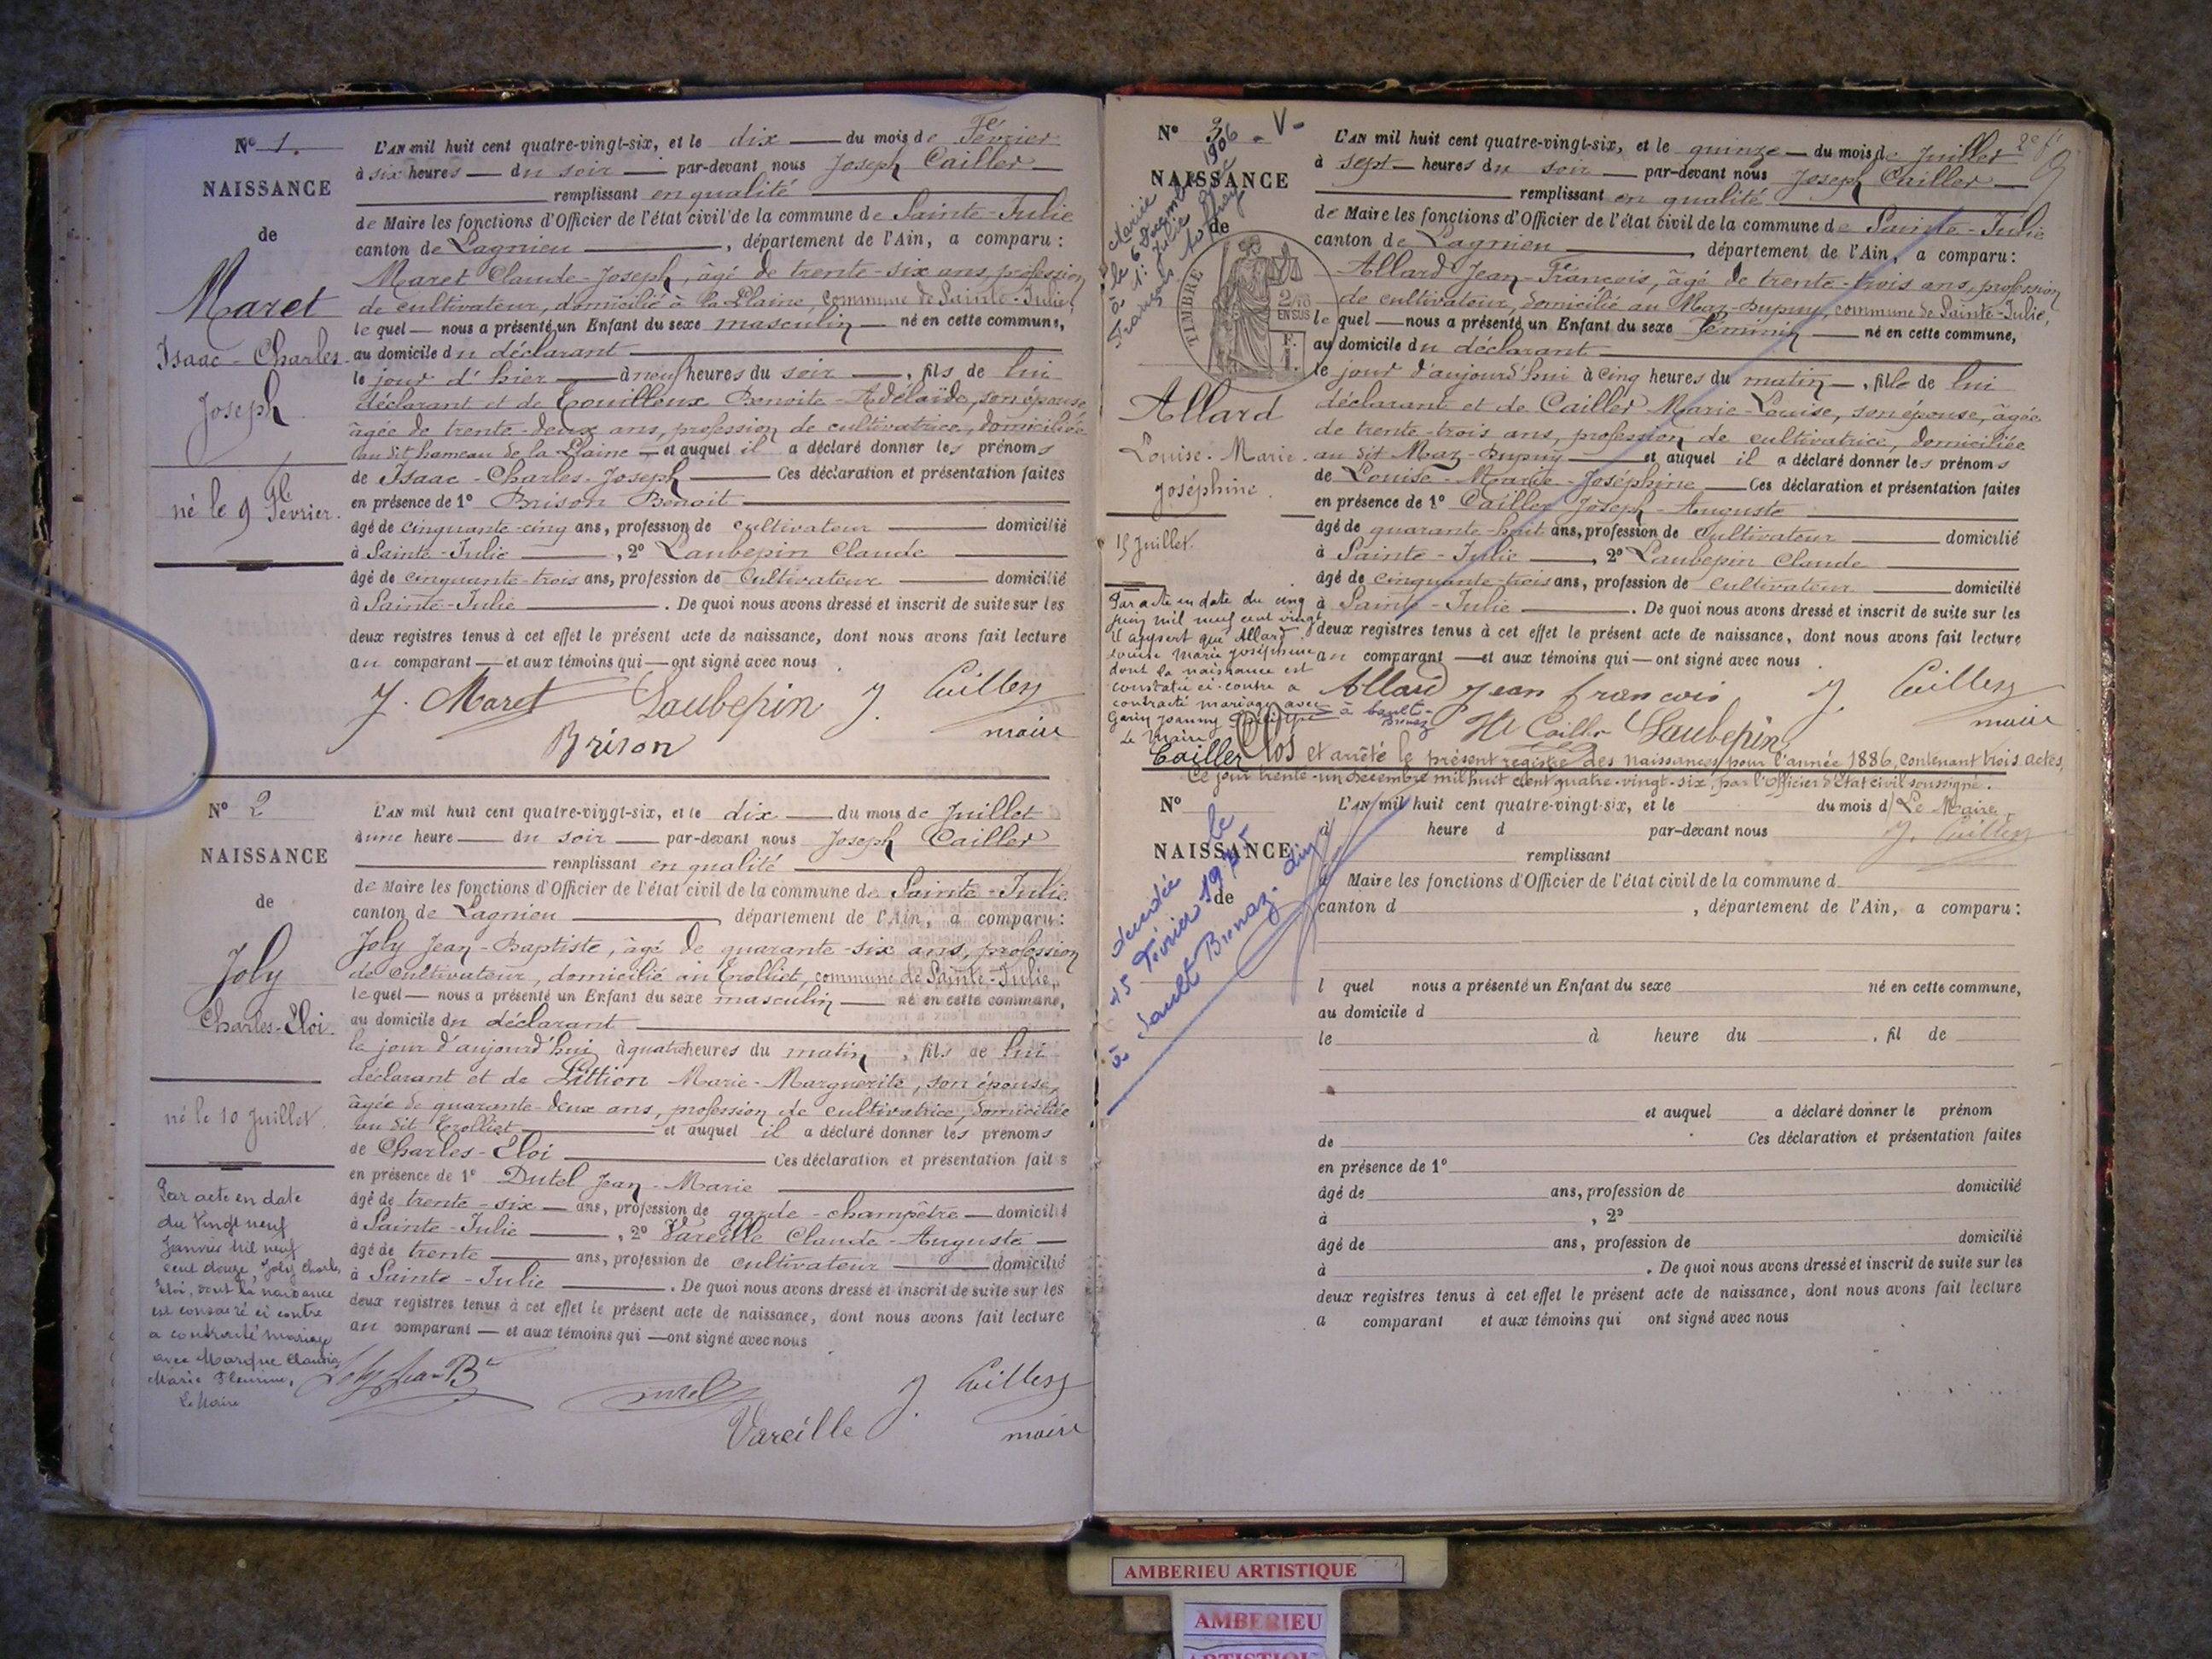 N° 1.
NAISSANCE
de
Maret
Isaac-Charles
Joseph
né le 9 Février.
L'AN mil huit cent quatre-vingt-six, et le dix du mois de Février
à six heures du soir par-devant nous Joseph Cailler
remplissant en qualité
de Maire les fonctions d'Officier de l'état civil de la commune de Sainte-Julie
canton de Lagnieu, département de l'Ain, a comparu :
Maret Claude-Joseph, âgé de trente-six ans, profession
de cultivateur, domicilié à la Plaine, commune de Sainte-Julie,
le quel nous a présenté un Enfant du sexe masculin né en cette commune,
au domicile du déclarant
le jour d'hier à neuf heures du soir, fils de lui
déclarant et de Touilleux Benoite-Adélaïde, son épouse
âgée de trente-deux ans, profession de cultivatrice, domiciliée
au dit hameau de la Plaine et auquel il a déclaré donner les prénoms
de Isaac-Charles-Joseph Ces déclaration et présentation faites
en présence de 1° Brison Benoit
âgé de cinquante-cinq ans, profession de cultivateur domicilié
à Sainte-Julie, 2° Laubepin Claude
âgé de cinquante-trois ans, profession de Cultivateur domicilié
à Sainte-Julie. De quoi nous avons dressé et inscrit de suite sur les
deux registres tenus à cet effet le présent acte de naissance, dont nous avons fait lecture
au comparant et aux témoins qui ont signé avec nous.
J. Maret Laubepin J. Cailler
maire
Brison
N° 2
NAISSANCE
de
Joly
Charles-Eloi.
né le 10 Juillet.
Par acte en date
du Vingt neuf
Janvier Mil neuf
cent douze, Joly Charles
Eloi, dont la naissance
est consacré ci contre
a contracté mariage
avec Marque Claudia
Marie Fleurine,
Le Maire
L'AN mil huit cent quatre-vingt-six, et le dix du mois de Juillet
à une heure du soir par-devant nous Joseph Cailler
remplissant en qualité
de Maire les fonctions d'Officier de l'état civil de la commune de Sainte-Julie
canton de Lagnieu, département de l'Ain, a comparu :
Joly Jean-Baptiste, âgé de quarante-six ans, profession
de cultivateur, domicilié au Trolliet, commune de Sainte-Julie,
le quel nous a présenté un Enfant du sexe masculin né en cette commune,
au domicile du déclarant
le jour d'aujourd'hui à quatre heures du matin, fils de lui
déclarant et de Littion Marie-Marguerite, son épouse,
âgée de quarante-deux ans, profession de cultivatrice, domiciliée
au dit Trolliet et auquel il a déclaré donner les prénoms
de Charles-Eloi Ces déclaration et présentation faites
en présence de 1° Dutel Jean-Marie
âgé de trente-six ans, profession de garde-champêtre domicilié
à Sainte-Julie, 2° Vareille Claude-Auguste
âgé de trente ans, profession de cultivateur domicilié
à Sainte-Julie. De quoi nous avons dressé et inscrit de suite sur les
deux registres tenus à cet effet le présent acte de naissance, dont nous avons fait lecture
au comparant et aux témoins qui ont signé avec nous
Joly Jean Bte Dutel J. Cailler
Vareille maire
N° 3 - V -
NAISSANCE
de
TIMBRE
2/10
EN SUS
F.
1.
Allard
Louise-Marie
Joséphine.
15 Juillet.
Par acte en date du cinq
juin mil neuf cent vingt
il appert que Allard
Louise Marie Joséphine
dont la naissance est
constatée ci-contre a
contracté mariage avec
Garin Joanny
à Sault-
Brenaz
Le Maire
Cailler
L'AN mil huit cent quatre-vingt-six, et le quinze du mois de Juillet
à sept heures du soir par-devant nous Joseph Cailler
remplissant en qualité
de Maire les fonctions d'Officier de l'état civil de la commune de Sainte-Julie
canton de Lagnieu, département de l'Ain, a comparu :
Allard Jean-François, âgé de trente-trois ans, profession
de cultivateur, domicilié au Maz-Dupuy, commune de Sainte-Julie,
le quel nous a présenté un Enfant du sexe féminin né en cette commune,
au domicile du déclarant
le jour d'aujourd'hui à cinq heures du matin, fille de lui
déclarant et de Cailler Marie-Louise, son épouse, âgée
de trente-trois ans, profession de cultivatrice, domiciliée
au dit Maz-Dupuy et auquel il a déclaré donner les prénoms
de Louise-Marie-Joséphine Ces déclaration et présentation faites
en présence de 1° Cailler Joseph-Auguste
âgé de quarante-huit ans, profession de Cultivateur domicilié
à Sainte-Julie, 2° Laubepin Claude
âgé de cinquante-trois ans, profession de cultivateur domicilié
à Sainte-Julie. De quoi nous avons dressé et inscrit de suite sur les
deux registres tenus à cet effet le présent acte de naissance, dont nous avons fait lecture
au comparant et aux témoins qui ont signé avec nous.
Allard Jean francois J. Cailler
maire
Cailler Laubepin
Clos et arrêté le présent registre des Naissances pour l'année 1886, contenant trois actes,
Ce jour trente-un Décembre mil huit cent quatre-vingt-six, par l'Officier d'Etat civil soussigné.
Le Maire
J. Cailler
N°
NAISSANCE
de
décédée le
15 Février 1975
à Sault Brenaz. Ain
L'AN mil huit cent quatre-vingt-six, et le du mois d
à heure d par-devant nous
remplissant
d Maire les fonctions d'Officier de l'état civil de la commune d
canton d, département de l'Ain, a comparu :
l quel nous a présenté un Enfant du sexe né en cette commune,
au domicile d
le à heure du, fil de
et auquel a déclaré donner le prénom
de Ces déclaration et présentation faites
en présence de 1°
âgé de ans, profession de domicilié
à, 2°
âgé de ans, profession de domicilié
à. De quoi nous avons dressé et inscrit de suite sur les
deux registres tenus à cet effet le présent acte de naissance, dont nous avons fait lecture
a comparant et aux témoins qui ont signé avec nous
AMBERIEU ARTISTIQUE
AMBERIEU
ARTISTIQUE